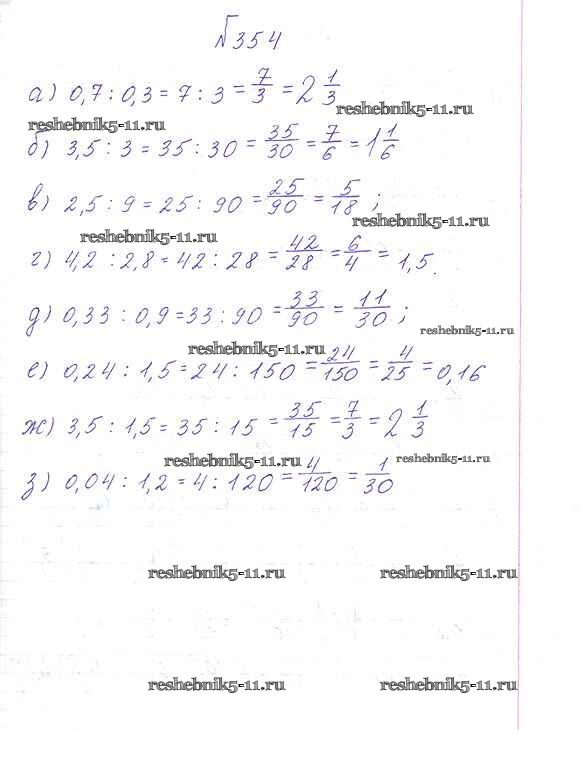 №354
а) 0,7 : 0,3 = 7 : 3 = 7/3 = 2 1/3
reshebnik5-11.ru
reshebnik5-11.ru
б) 3,5 : 3 = 35 : 30 = 35/30 = 7/6 = 1 1/6
в) 2,5 : 9 = 25 : 90 = 25/90 = 5/18 ;
reshebnik5-11.ru
reshebnik5-11.ru
г) 4,2 : 2,8 = 42 : 28 = 42/28 = 6/4 = 1,5.
д) 0,33 : 0,9 = 33 : 90 = 33/90 = 11/30 ;
reshebnik5-11.ru
reshebnik5-11.ru
е) 0,24 : 1,5 = 24 : 150 = 24/150 = 4/25 = 0,16
ж) 3,5 : 1,5 = 35 : 15 = 35/15 = 7/3 = 2 1/3
reshebnik5-11.ru reshebnik5-11.ru
з) 0,04 : 1,2 = 4 : 120 = 4/120 = 1/30
reshebnik5-11.ru reshebnik5-11.ru
reshebnik5-11.ru reshebnik5-11.ru